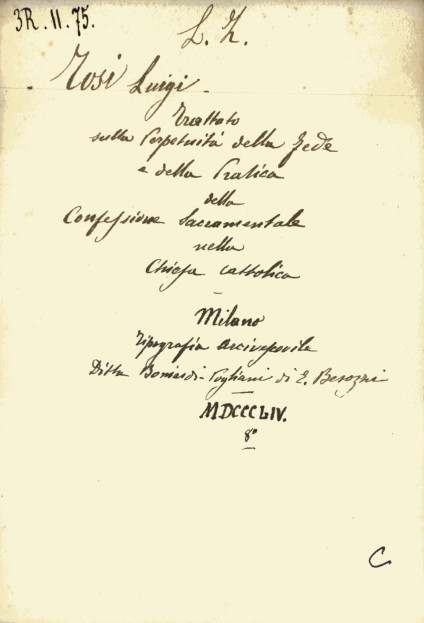 3R. 11. 75.
L. Z.
Tosi Luigi.
Trattato
sulla Perpetuità della Fede
e della Pratica
della
Confessione Sacramentale
nella
Chiesa cattolica
Milano
Tipografia Arcivescovile
Ditta Boniardi-Pogliani di E. Besozzi
MDCCCLIV.
8°
C